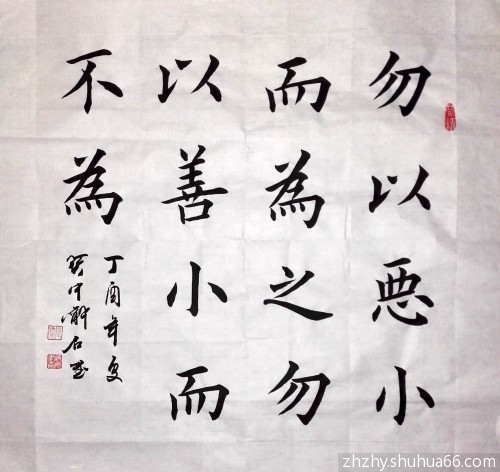 勿以恶小
而为之勿
以善小而
不為
丁酉年夏
zhzhy.shuhua66.com